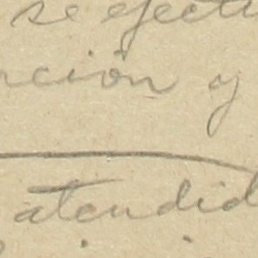 se efectu
nción y
atendid